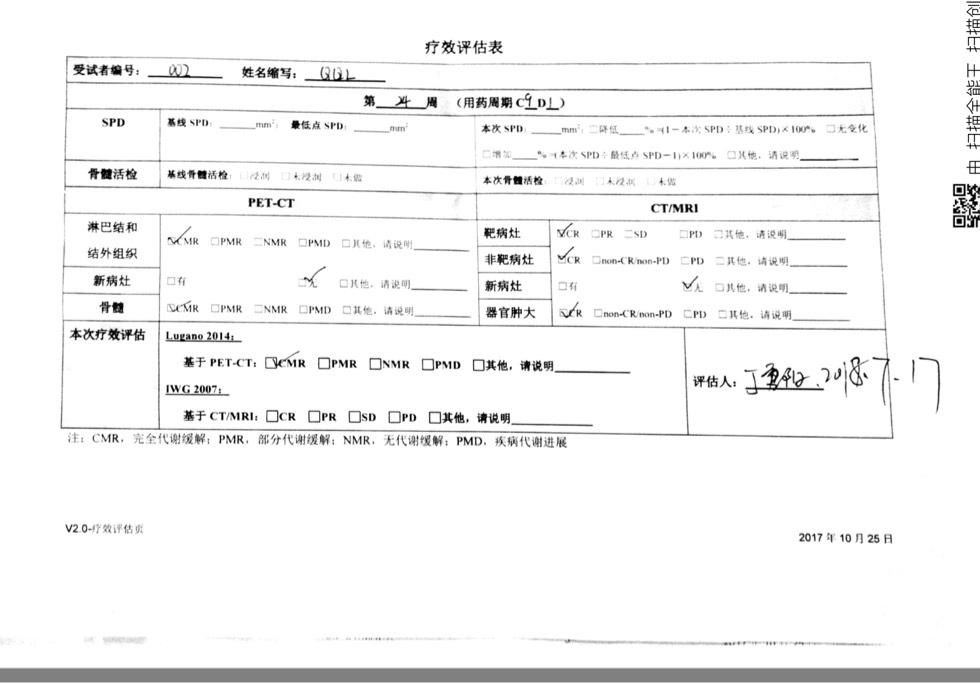 疗效评估表
受试者编号： 002 姓名缩写： QQL
第 24 周 （用药周期 C9D1）
SPD 基线 SPD：______mm²；最低点 SPD：______mm² 本次 SPD：______mm²；□降低____%=(1－本次 SPD÷基线 SPD)×100% □无变化
□增加____%=(本次 SPD÷最低点 SPD－1)×100% □其他，请说明________
骨髓活检 基线骨髓活检：□浸润 □未浸润 □未做 本次骨髓活检：□浸润 □未浸润 □未做
PET-CT CT/MRI
淋巴结和结外组织 ☑CMR □PMR □NMR □PMD □其他，请说明________ 靶病灶 ☑CR □PR □SD □PD □其他，请说明________
非靶病灶 ☑CR □non-CR/non-PD □PD □其他，请说明________
新病灶 □有 ☑无 □其他，请说明________ 新病灶 □有 ☑无 □其他，请说明________
骨髓 ☑CMR □PMR □NMR □PMD □其他，请说明________ 器官肿大 ☑CR □non-CR/non-PD □PD □其他，请说明________
本次疗效评估 Lugano 2014：
基于 PET-CT：☑CMR □PMR □NMR □PMD □其他，请说明__________
IWG 2007：
基于 CT/MRI：□CR □PR □SD □PD □其他，请说明__________
评估人： 2018.7.17
注：CMR，完全代谢缓解；PMR，部分代谢缓解；NMR，无代谢缓解；PMD，疾病代谢进展
V2.0-疗效评估页
2017 年 10 月 25 日
由 扫描全能王 扫描创